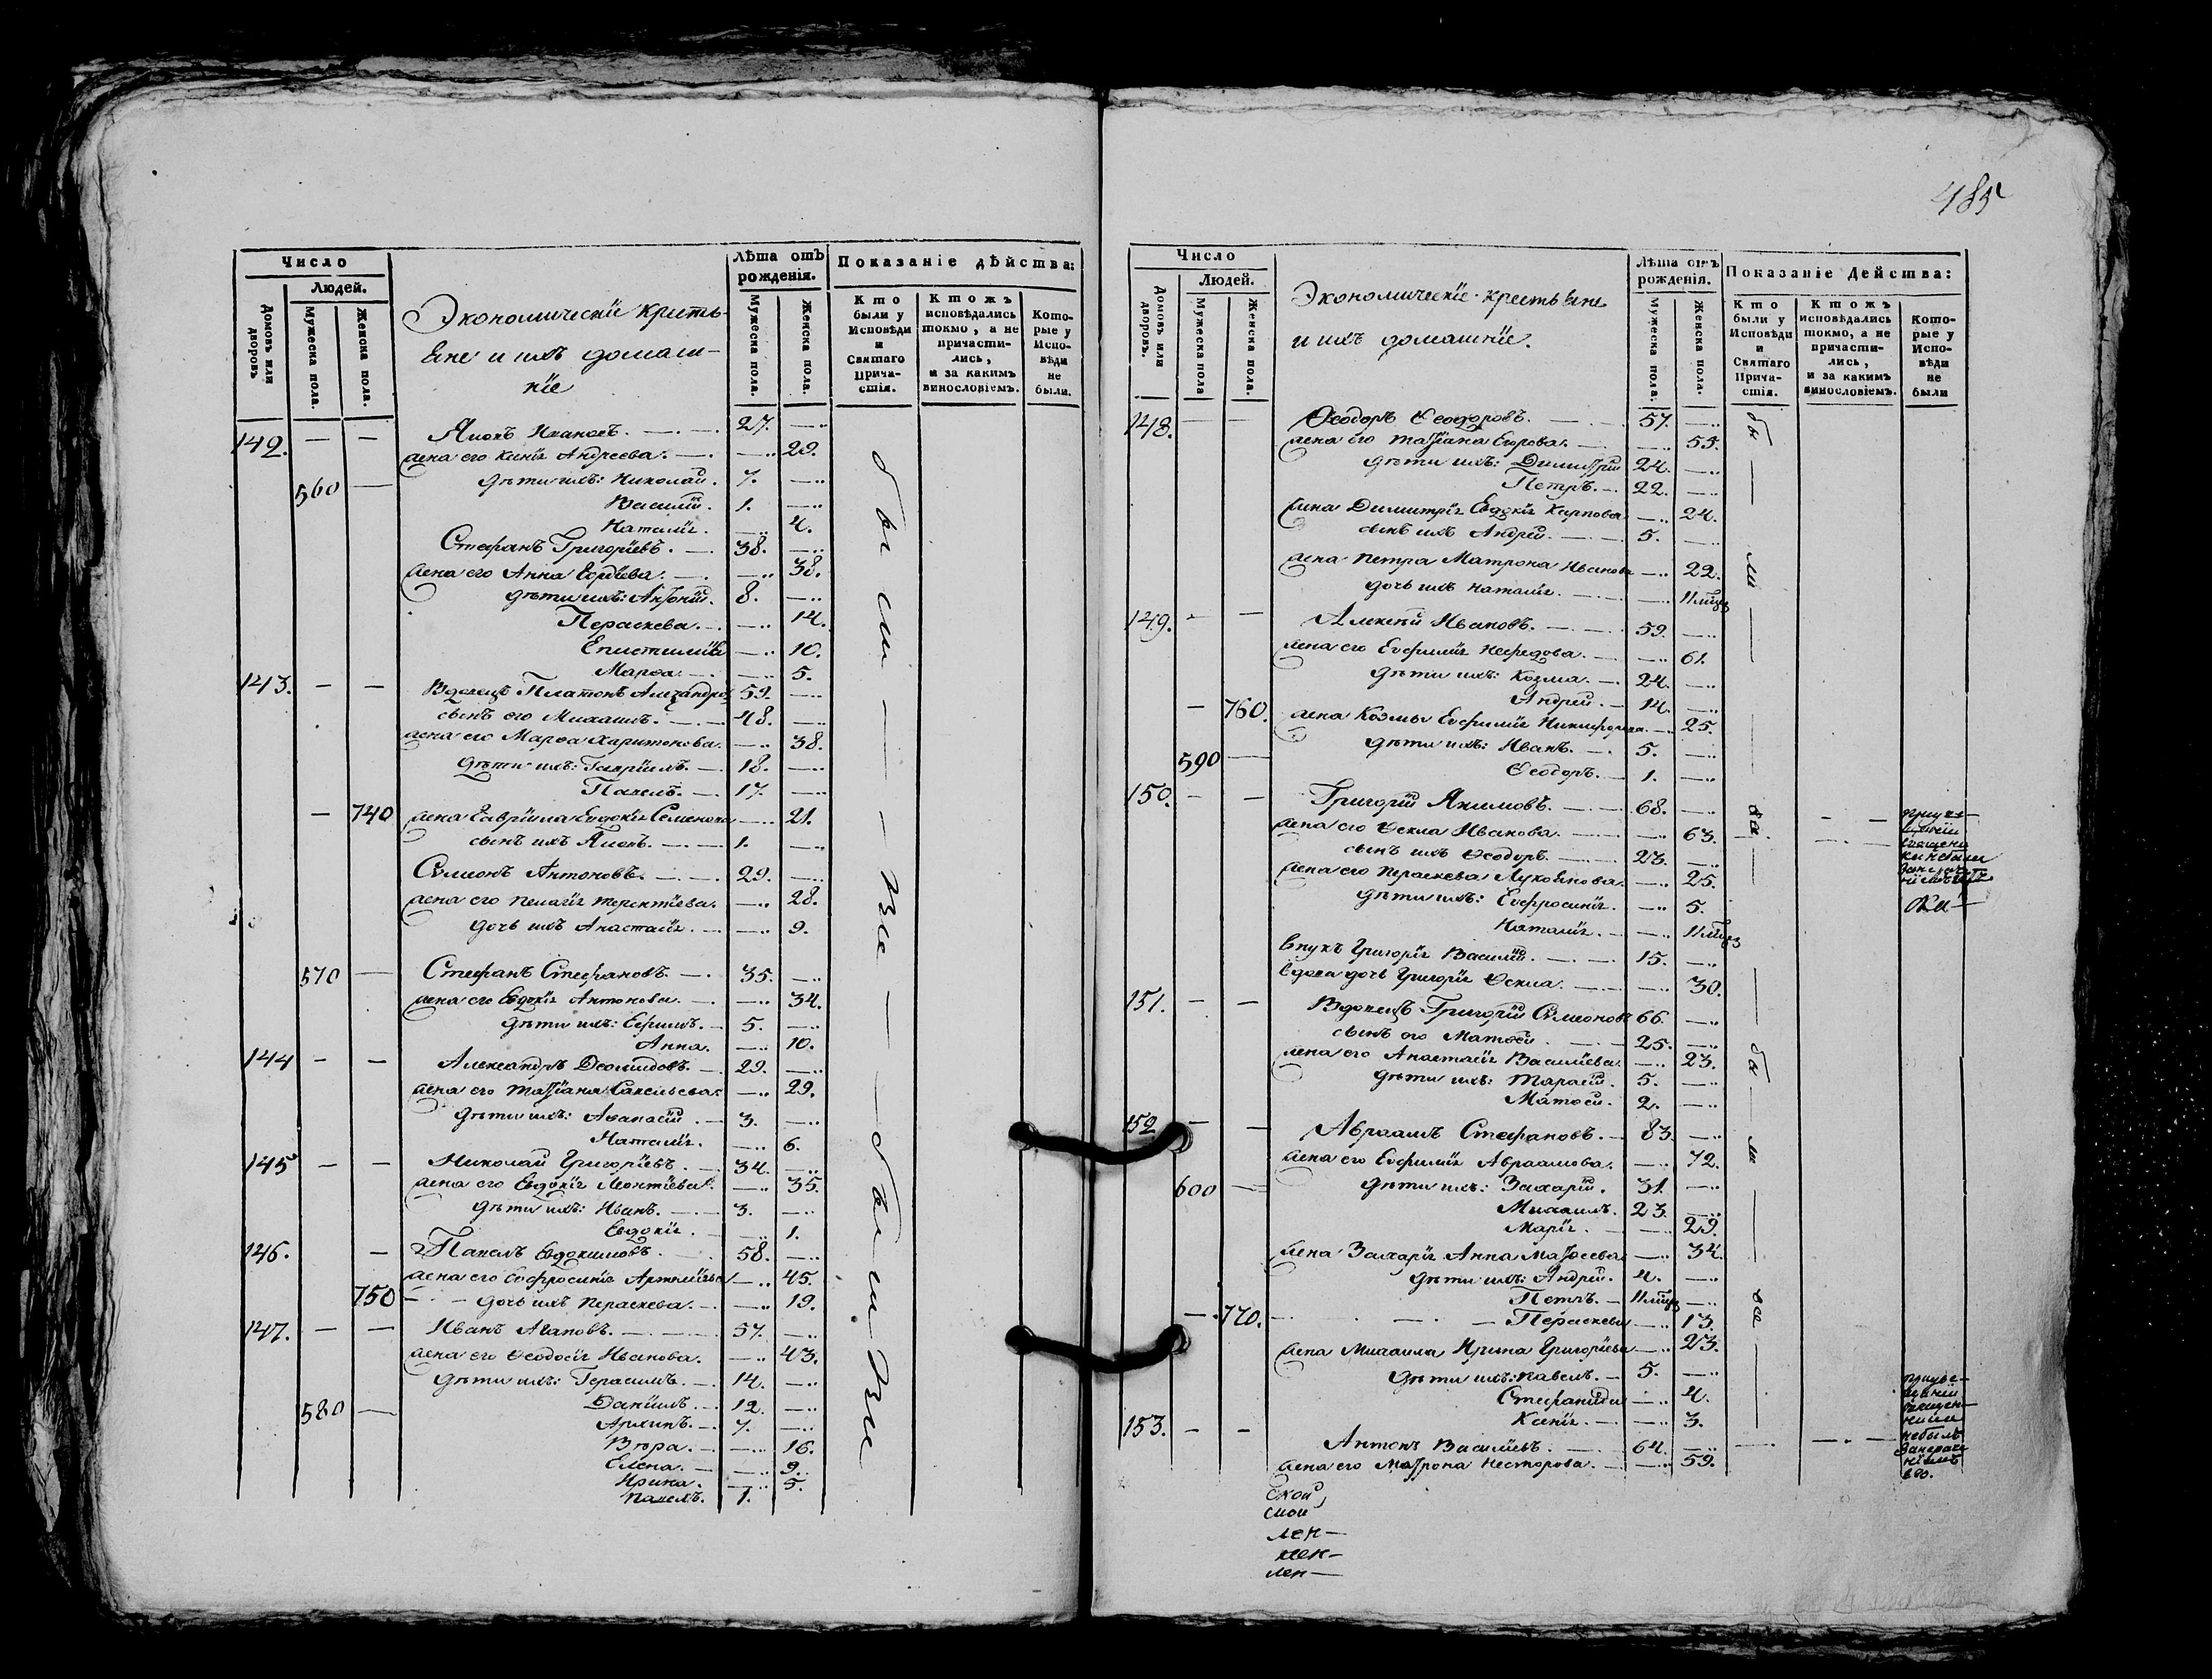 485
Число
Людей.
Домовъ или дворовъ
Мужеска пола.
Женска пола.
Экономическiе крестьяне и ихъ домашнiе
Лѣта отъ рожденiя.
Мужеска пола.
Женска пола.
Показанiе дѣйства:
Кто были у Исповѣди и Святаго Причастiя.
Ктожъ исповѣдались токмо, а не причастились, и за какимъ винословiемъ.
Которые у Исповѣди не были.
142. — — Яковъ Ивановъ. 27.
жена его Ксенiя Андреева. 29.
560 — дѣти ихъ: Николай. 7.
Василiй. 1.
Наталiя. 4.
Стефанъ Григорiевъ. 38.
жена его Анна Гордѣева. 38.
дѣти ихъ: Антонiй. 8.
Параскева. 14.
Епистимiя 10.
Марѳа. 5.
143. — — Вдовецъ Платонъ Александровъ 59.
сынъ его Михаилъ. 48.
жена его Марѳа Харитонова. 38.
дѣти ихъ: Гаврiилъ. 18.
Павелъ. 17.
— 740 жена Гаврiила Евдокiя Семенова 21.
сынъ ихъ Яковъ. 1.
Сѵмеонъ Антоновъ. 29.
жена его Пелагiя Терентiева. 28.
дочь ихъ Анастасiя. 9.
570 — Стефанъ Стефановъ. 35.
жена его Евдокiя Антонова. 34.
дѣти ихъ: Ефимъ. 5.
Анна. 10.
144 — — Александръ Деомидовъ. 29.
жена его Татiана Савельева. 29.
дѣти ихъ: Аѳанасiй. 3.
Наталiя. 6.
145 — — Николай Григорiевъ. 34.
жена его Евдокiя Леонтiева. 35.
дѣти ихъ: Иванъ. 3.
Евдокiя. 1.
146. — Павелъ Евдокимовъ. 58.
жена его Евфросинiя 45.
750 — дочь ихъ Параскева. 19.
147. — — Иванъ Агаповъ. 57.
жена его Ѳеодосiя Иванова. 43.
дѣти ихъ: Герасимъ. 14.
580 — Данiилъ. 12.
Архипъ. 7.
Вѣра. 16.
Елена. 9.
Ирина. 5.
Павелъ. 1.
были — все — были все
Число
Людей.
Домовъ или дворовъ.
Мужеска пола
Женска пола.
Экономическiе крестьяне и ихъ домашнiе.
Лѣта отъ рожденiя.
Мужеска пола.
Женска пола.
Показанiе Действа:
Кто были у Исповѣди и Святаго Причастiя.
Ктожъ исповѣдались токмо, а не причастились, и за какимъ винословiемъ.
Которые у Исповѣди не были
148. — — Ѳеодоръ Ѳеодоровъ. 57.
жена его Татiана Егорова. 55.
дѣти ихъ: Димитрiй 24.
Петръ. 22.
жена Димитрiя Евдокiя Карпова 24.
сынъ ихъ Андрей. 5.
жена Петра Матрона Иванова 22.
дочь ихъ Наталiя. 11 мѣс
149. — — Алексiй Ивановъ. 59.
жена его Евфимiя Нефедова. 61.
дѣти ихъ: Козма. 24.
Андрей. 14.
— 760. жена Козмы Евфимiя Никифорова 25.
дѣти ихъ: Иванъ. 5.
590 — Ѳеодоръ. 1.
150. — — Григорiй Якимовъ. 68.
жена его Ѳекла Иванова. 63.
сынъ ихъ Ѳеодоръ. 23.
жена его Параскева Лукоянова. 25.
дѣти ихъ: Евфросинiя. 5.
Наталiя. 11 мѣс
внукъ Григорiя Василiй. 15.
вдова дочь Григорiя Ѳекла. 30.
151. — — Вдовецъ Григорiй Сѵмеоновъ 66.
сынъ его Матѳей 25.
жена его Анастасiя Василiева. 23.
дѣти ихъ: Тарасiй. 5.
Матѳей. 2.
152 — — Авраамъ Стефановъ. 83.
жена его Евфимiя Авраамова. 72.
600 — дѣти ихъ: Захарiй. 31.
Михаилъ. 23.
Марiя. 29.
жена Захарiя Анна Матѳеева 34.
дѣти ихъ: Андрей. 4.
Петръ. 11 мѣс
— 770. Параскева 13.
жена Михаила Ирина Григорiева 23.
дѣти ихъ: Павелъ. 5.
Стефанида 4.
Ксенiя. 3.
153. — — Антонъ Василiевъ. 64.
жена его Матрона Несторова. 59.
бы — ли — все
бы — ли — все
небылъ